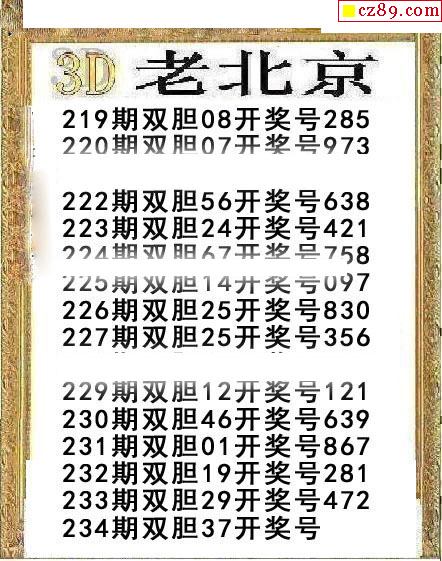 cz89.com
3D 老北京
219期双胆08开奖号285
220期双胆07开奖号973
222期双胆56开奖号638
223期双胆24开奖号421
224期双胆67开奖号758
225期双胆14开奖号097
226期双胆25开奖号830
227期双胆25开奖号356
229期双胆12开奖号121
230期双胆46开奖号639
231期双胆01开奖号867
232期双胆19开奖号281
233期双胆29开奖号472
234期双胆37开奖号